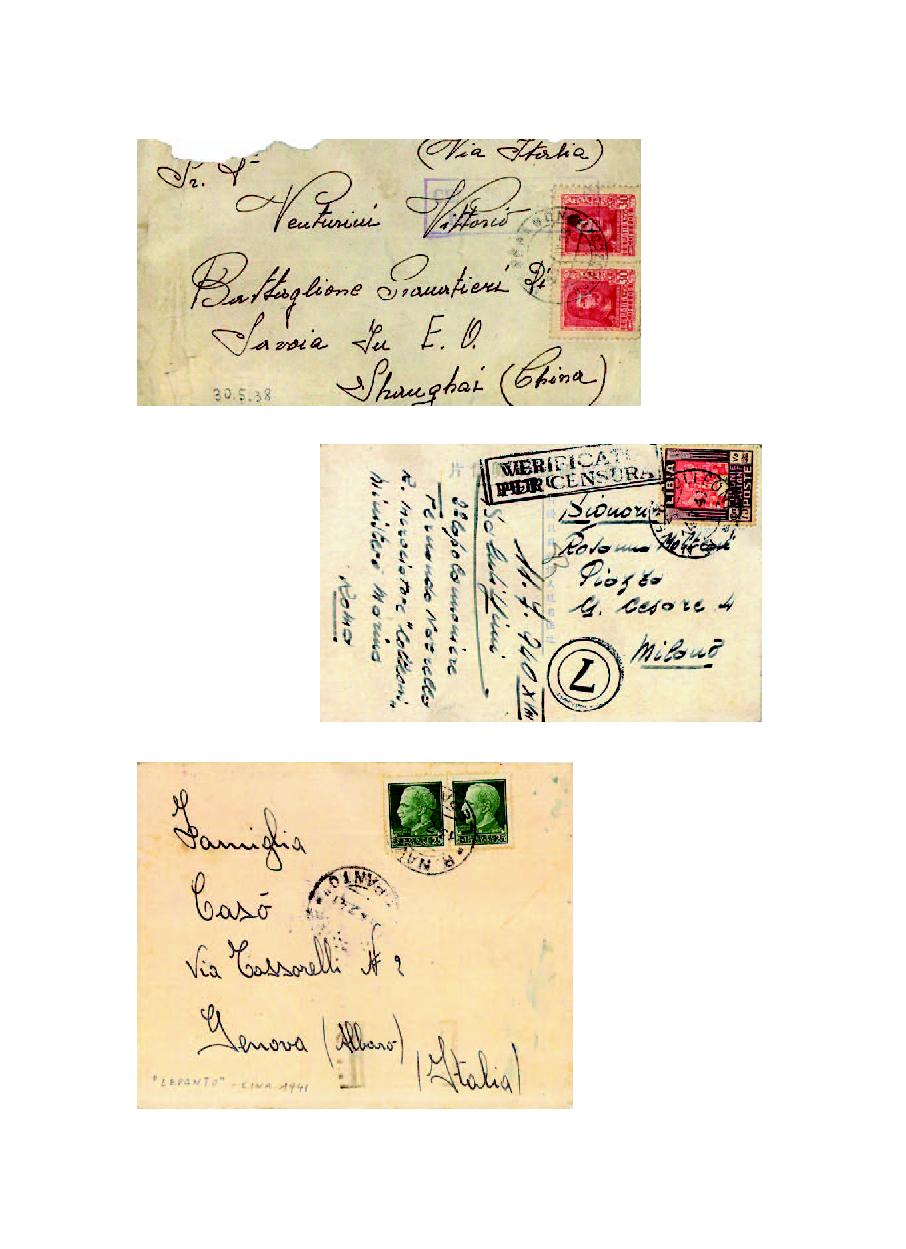 (Via Italia)
Venturini Vittorio
Battaglione Granatieri Di
Savoia In E. O.
Shanghai (China)
30.5.38
30
30
VERIFICATO
PER CENSURA
LIBIA
POSTE
Signorina
Rosanna
Piazza
G. Cesare 4
Milano
7
11.7.940 XVIII
Fernando
R. Incrociatore "Colleoni"
Ministero Marina
Roma
R. NAV
LEPANTO
Famiglia
Casò
Via Tassorelli N 2
Genova (Albaro)
(Italia)
"LEPANTO" - CINA 1941